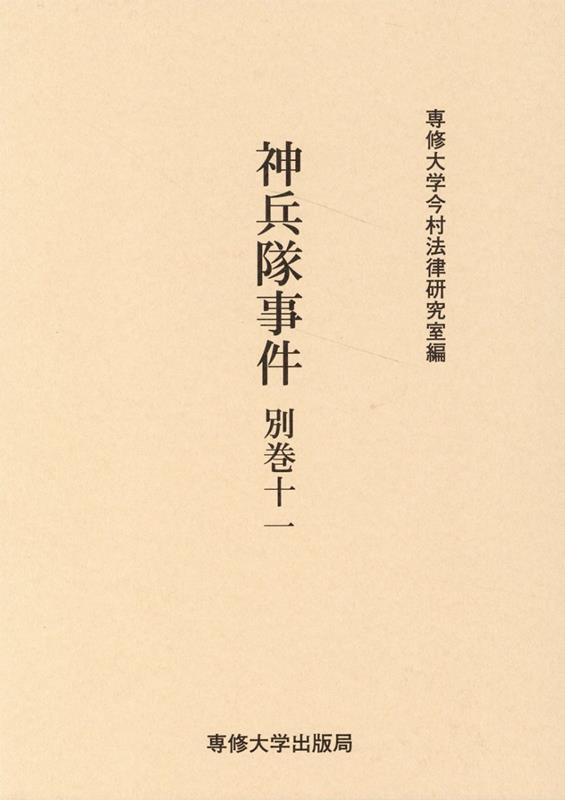 専修大学今村法律研究室編
神兵隊事件 別巻十一
専修大学出版局